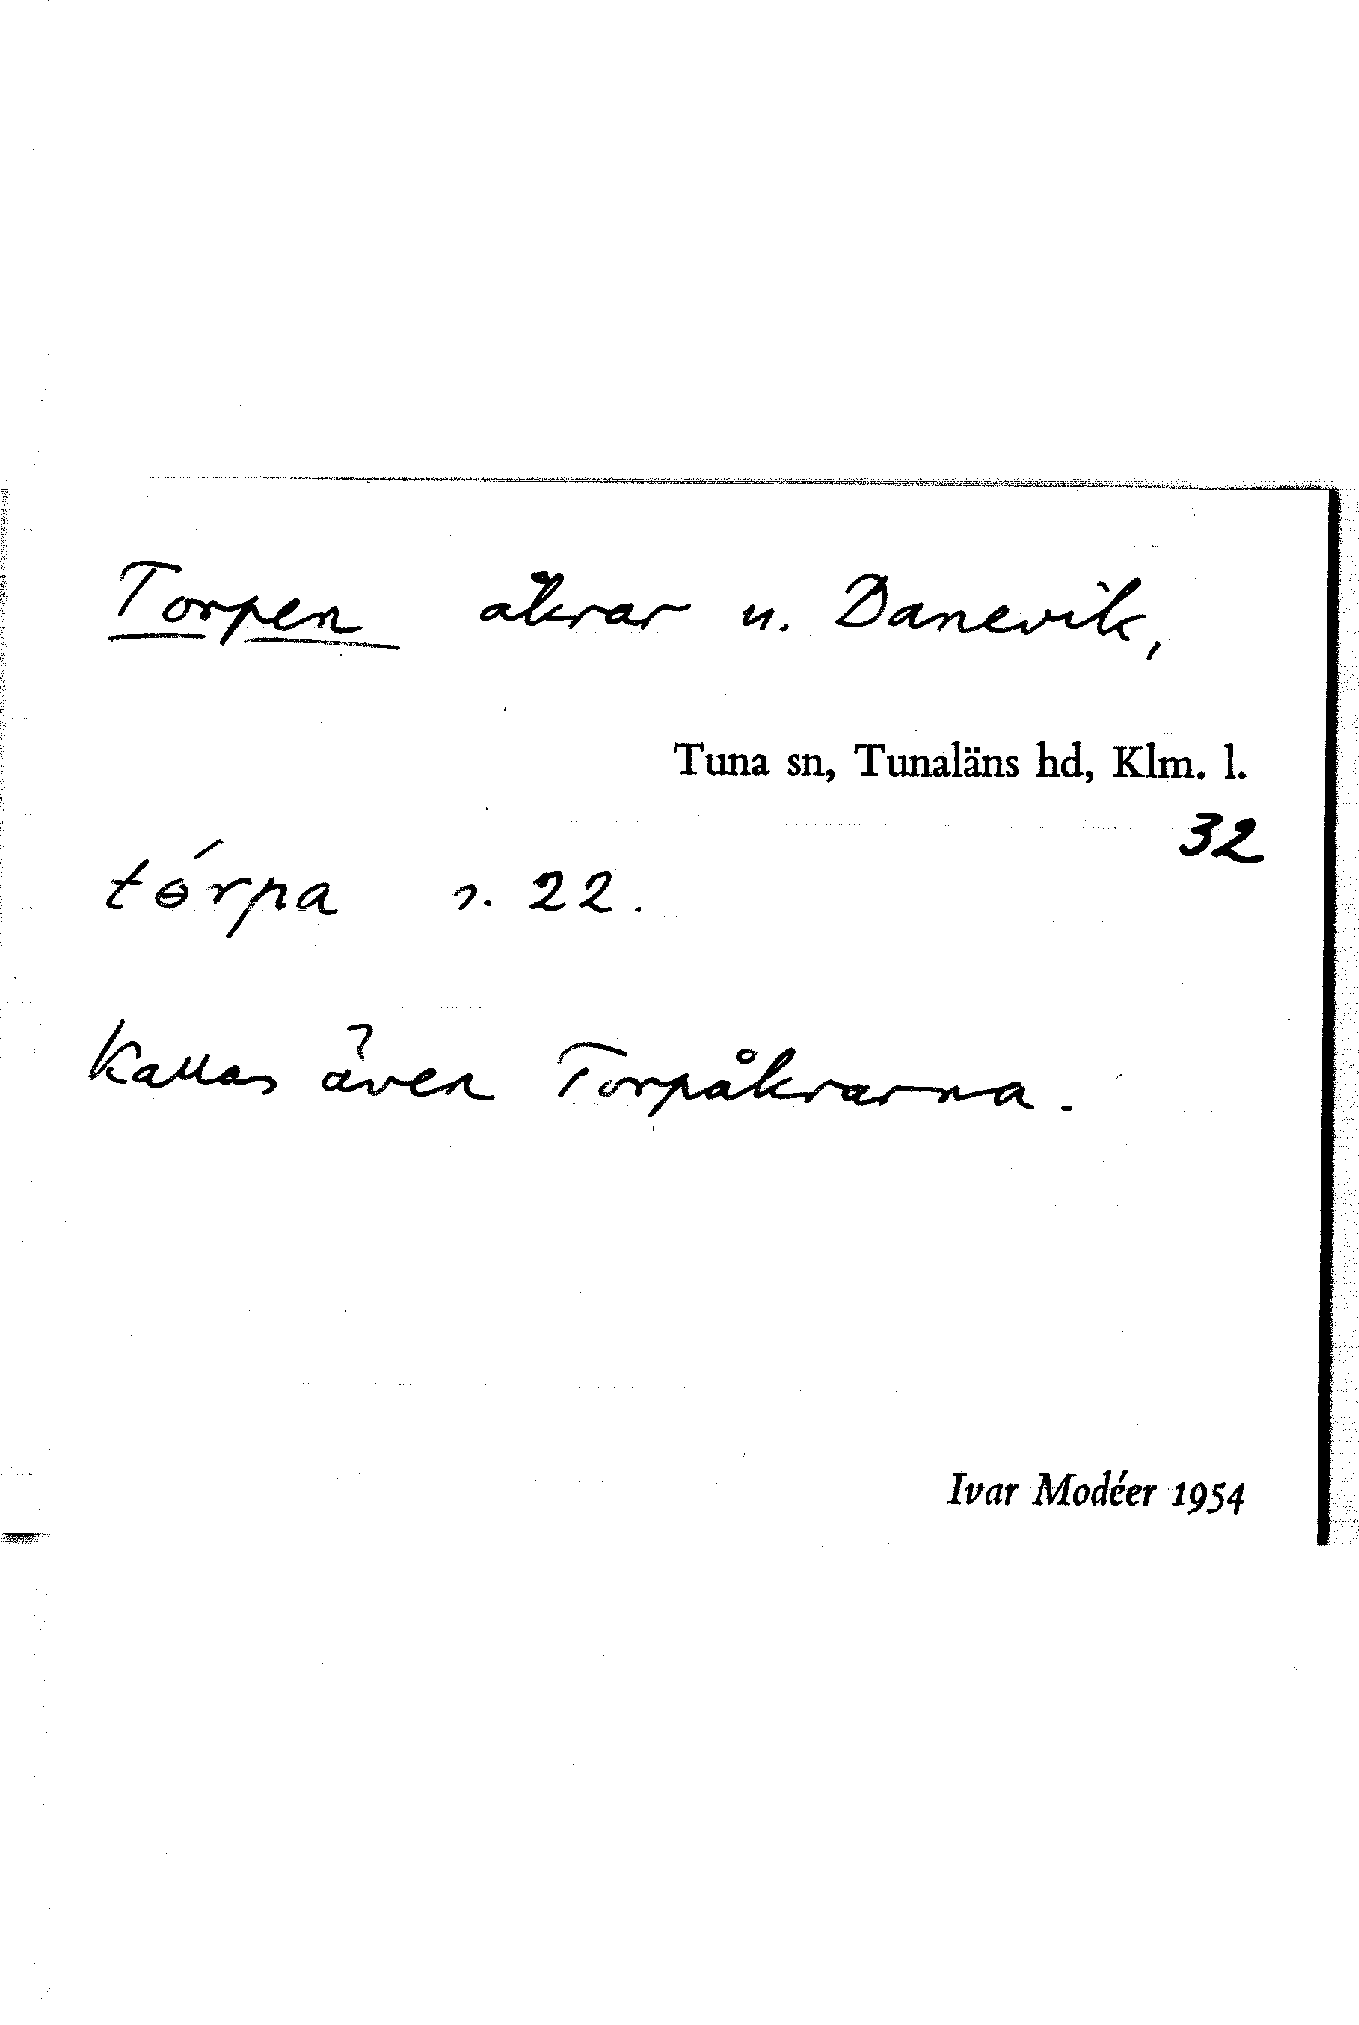 Torpen åkrar u. Danevik,
Tuna sn, Tunaläns hd, Klm. l.
32
tɵ́rpa s. 22.
Kallas även Torpåkrarna.
Ivar Modéer 1954